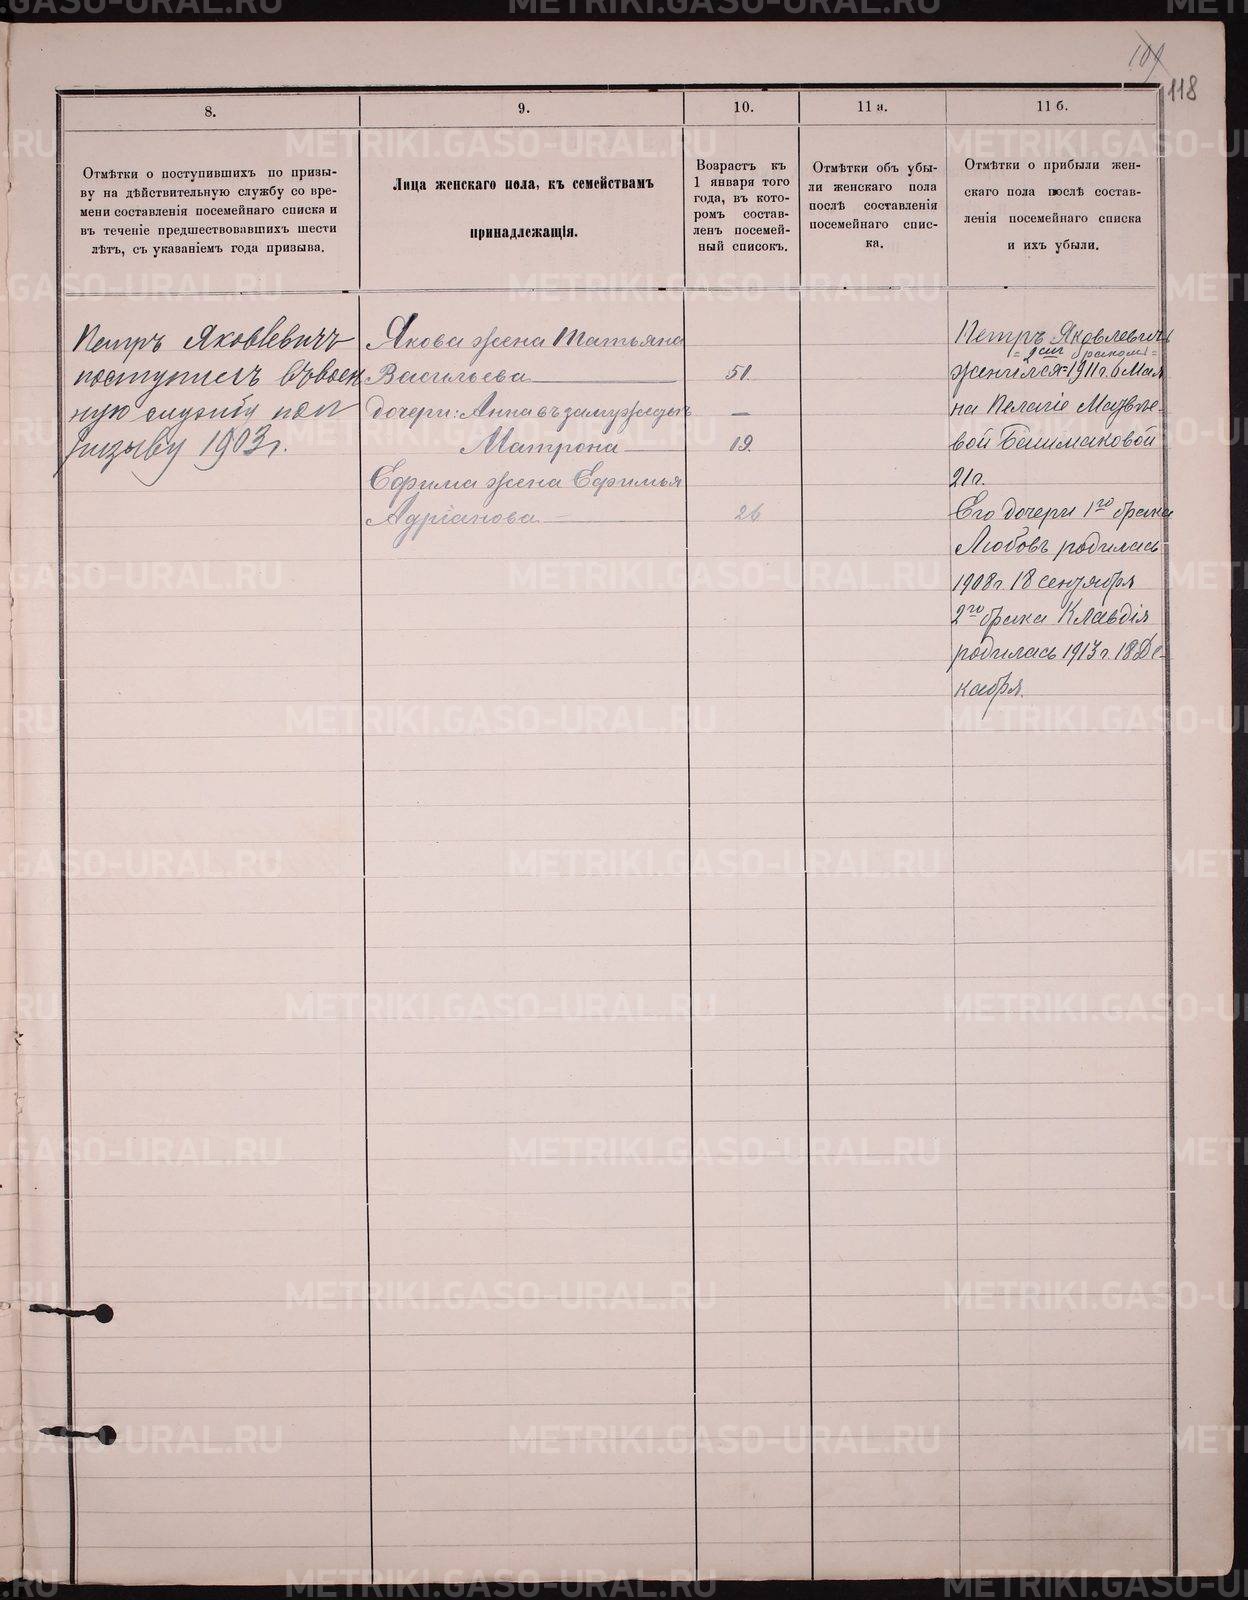 109
118
8.
9.
10.
11 а.
11 б.
Отмѣтки о поступившихъ по призы-
ву на дѣйствительную службу со вре-
мени составленія посемейнаго списка и
въ теченіе предшествовавшихъ шести
лѣтъ, съ указаніемъ года призыва.
Лица женскаго пола, къ семействамъ
принадлежащія.
Возрастъ къ
1 января того
года, въ кото-
ромъ состав-
ленъ посемей-
ный списокъ.
Отмѣтки объ убы-
ли женскаго пола
послѣ составленія
посемейнаго спис-
ка.
Отмѣтки о прибыли жен-
скаго пола послѣ состав-
ленія посемейнаго списка
и ихъ убыли.
Петръ Яковлевичъ
поступилъ въ воен
ную службу по п
ризыву 1903 г.
Якова жена Татьяна
Васильева 51.
дочери: Анна въ замужествѣ —
Матрона 19.
Ефима жена Ефимья
Адріанова 26
Петръ Яковлевичъ
= 2 бракомъ =
женился = 1911 г. 6 Мая
на Пелагіе Матвѣе-
вой Башмаковой
21 г.
Его дочери 1го брака
Любовь родилась
1908 г. 18 сентября
2го брака Клавдія
родилась 1913 г. 18 Де-
кабря.
METRIKI.GASO-URAL.RU